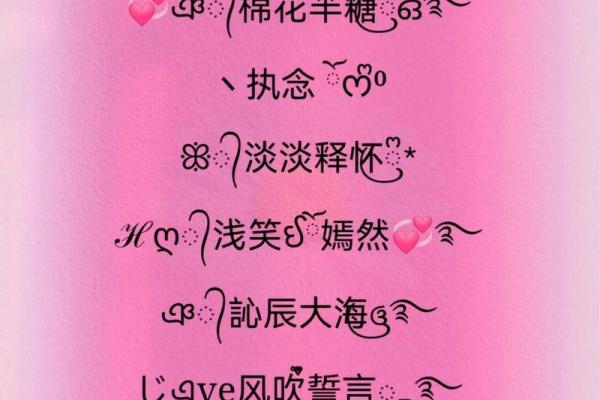 💞ঞ᭄棉花半糖ꦿ໑҉࿐
丶执念ོꦿ໊ྀº
ꕥ᭄淡淡释怀ꦿྀ*
ℋღ᭄浅笑ꦿ嫣然💞࿐
ঞ᭄訫辰大海ꦿ࿐
じ☙ve风吹誓言ꦿ࿐